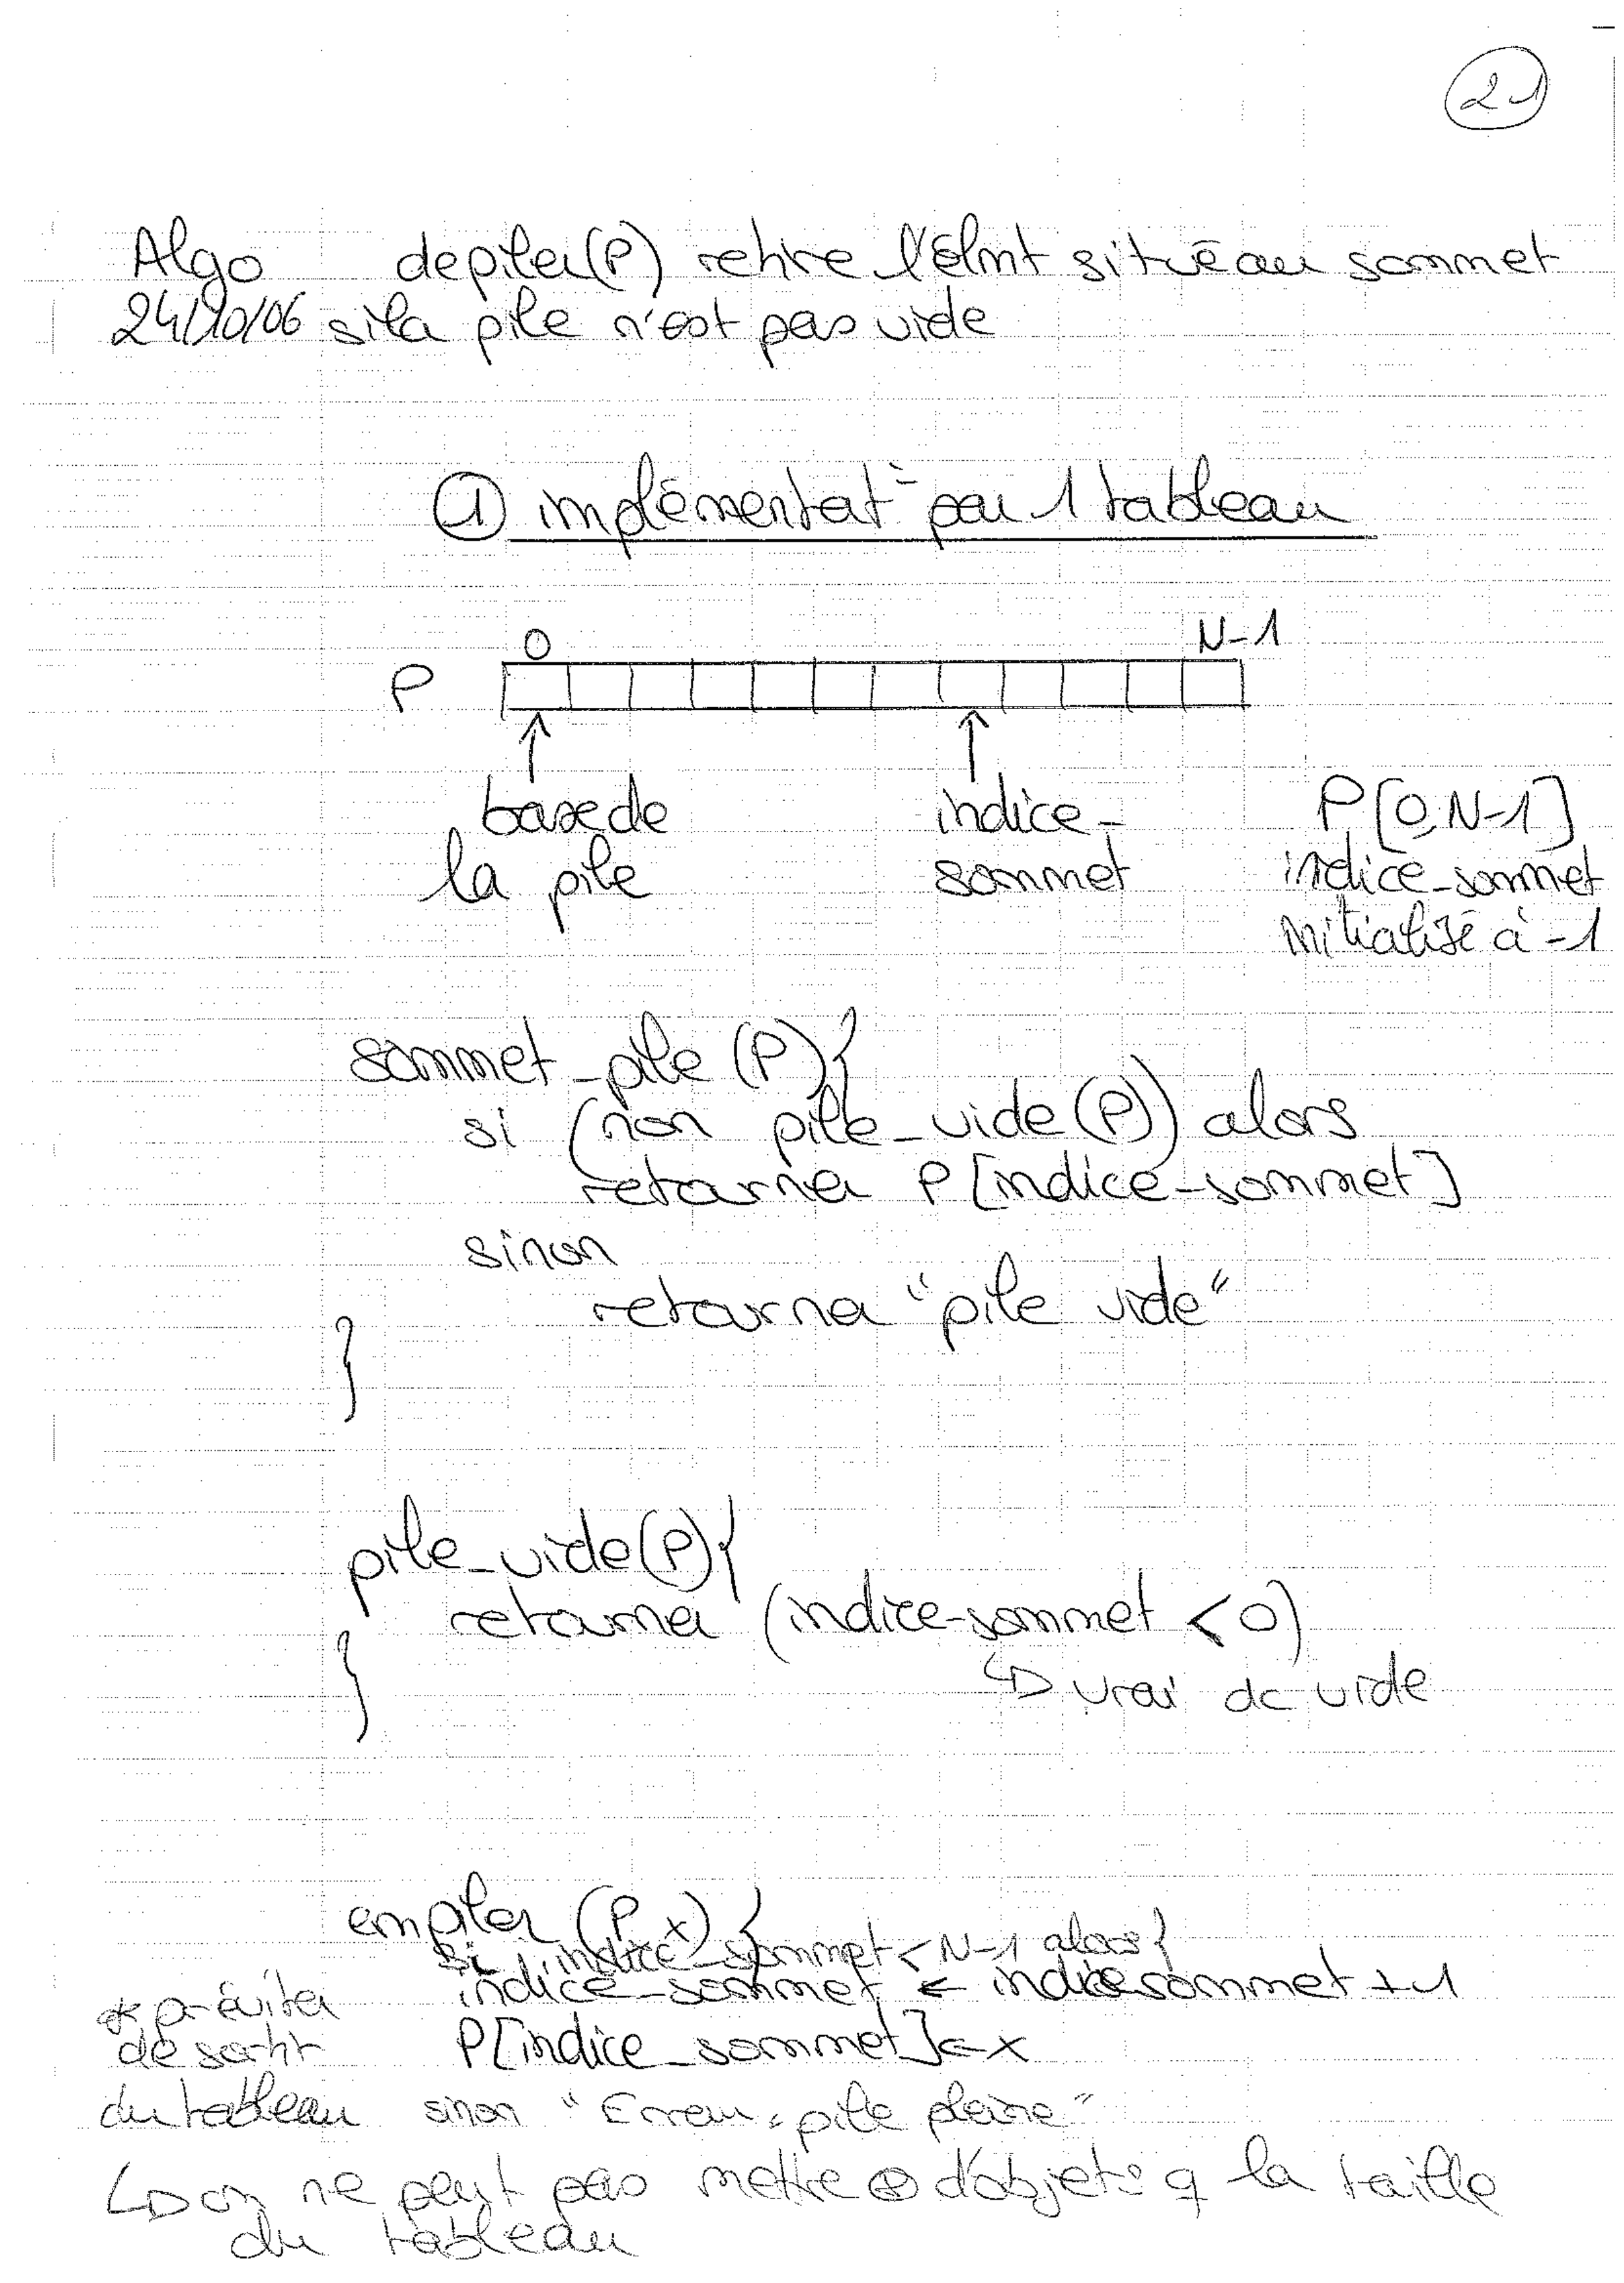 21
Algo depiler(P) retire l'élmt situé au sommet
24/10/06 si la pile n'est pas vide
① implémentat° par 1 tableau
0 N-1
P
base de indice- P[0,N-1]
la pile sommet indice_sommet
initialisé à -1
sommet_pile (P){
si (non pile_vide(P)) alors
retourner P[indice_sommet]
sinon
retourner "pile vide"
}
pile_vide(P){
retourner (indice_sommet < 0)
↳ vrai dc vide
}
empiler (P,x) {
si indice_sommet < N-1 alors{
indice_sommet ← indice sommet +1
* pr éviter
de sortir P[indice_sommet]← x
du tableau sinon "Erreur: pile pleine"
↳ on ne peut pas mettre ⊕ d'objets q la taille
du tableau